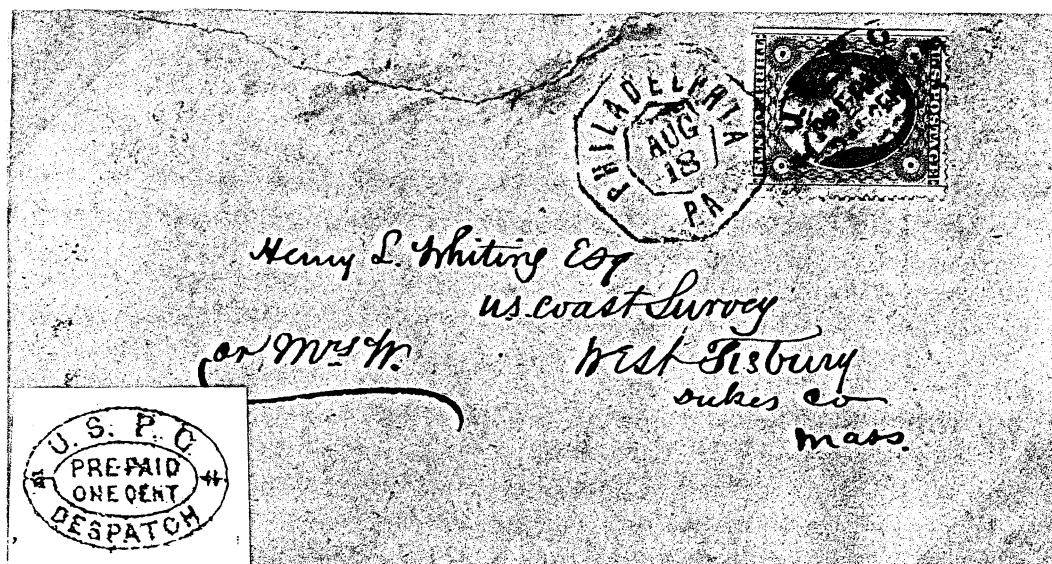 PHILADELPHIA
AUG
18
PA
U.S. POSTAGE
THREE CENTS
Henry L. Whiting Esq
U.S. Coast Survey
or Mrs W.
West Tisbury
Dukes Co
Mass.
U. S. P. O.
PRE-PAID
ONE CENT
DESPATCH